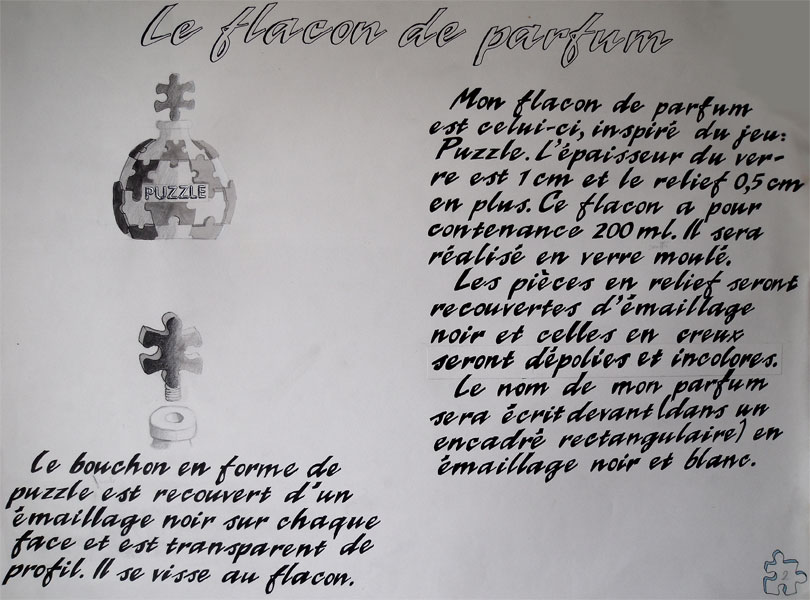 Le flacon de parfum
PUZZLE
Mon flacon de parfum
est celui-ci, inspiré du jeu:
Puzzle. L'épaisseur du ver-
re est 1 cm et le relief 0,5 cm
en plus. Ce flacon a pour
contenance 200 ml. Il sera
réalisé en verre moulé.
Les pièces en relief seront
recouvertes d'émaillage
noir et celles en creux
seront dépolies et incolores.
Le nom de mon parfum
sera écrit devant (dans un
encadré rectangulaire) en
émaillage noir et blanc.
Le bouchon en forme de
puzzle est recouvert d'un
émaillage noir sur chaque
face et est transparent de
profil. Il se visse au flacon.
2